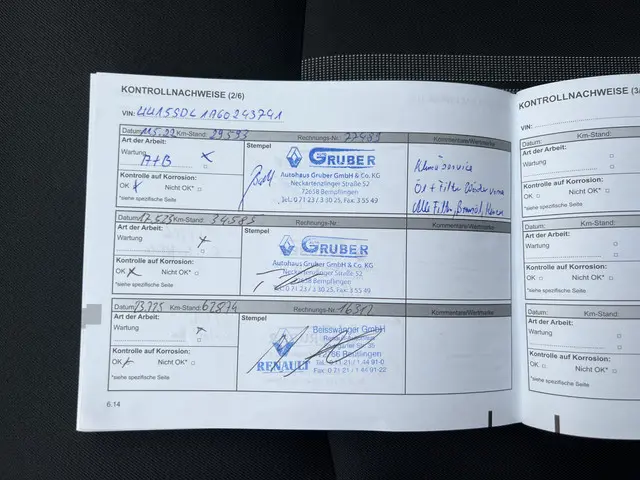 KONTROLLNACHWEISE (2/6)
VIN:
Datum: Km-Stand: 29593 Rechnungs-Nr.: 27489 Kommentare/Werkmarke
Art der Arbeit: Stempel
Wartung
A+B
GRUBER
Autohaus Gruber GmbH & Co. KG
Neckartenzlinger Straße 52
72658 Bempflingen
Tel. 0 71 23 / 3 30 25, Fax: 3 55 49
Klimaservice
Öl + Filter
Alle Filter
Kontrolle auf Korrosion:
OK Nicht OK*
*siehe spezifische Seite
Datum: Km-Stand: 34583 Rechnungs-Nr.: Kommentare/Werkmarke
Art der Arbeit: Stempel
Wartung
GRUBER
Autohaus Gruber GmbH & Co. KG
Neckartenzlinger Straße 52
72658 Bempflingen
Tel. 0 71 23 / 3 30 25, Fax: 3 55 49
Kontrolle auf Korrosion:
OK Nicht OK*
*siehe spezifische Seite
Datum: Km-Stand: 67874 Rechnungs-Nr. Kommentare/Werkmarke
Art der Arbeit: Stempel
Wartung
Beisswänger GmbH
RENAULT
Kontrolle auf Korrosion:
OK Nicht OK*
*siehe spezifische Seite
6.14
KONTROLLNACHWEISE (3/
VIN:
Datum: Km-Stand:
Art der Arbeit:
Wartung
Kontrolle auf Korrosion:
OK Nicht OK*
*siehe spezifische Seite
Datum: Km-Stand:
Art der Arbeit:
Wartung
Kontrolle auf Korrosion:
OK Nicht OK*
*siehe spezifische Seite
Datum: Km-Stand:
Art der Arbeit:
Wartung
Kontrolle auf Korrosion:
OK Nicht OK*
*siehe spezifische Seite